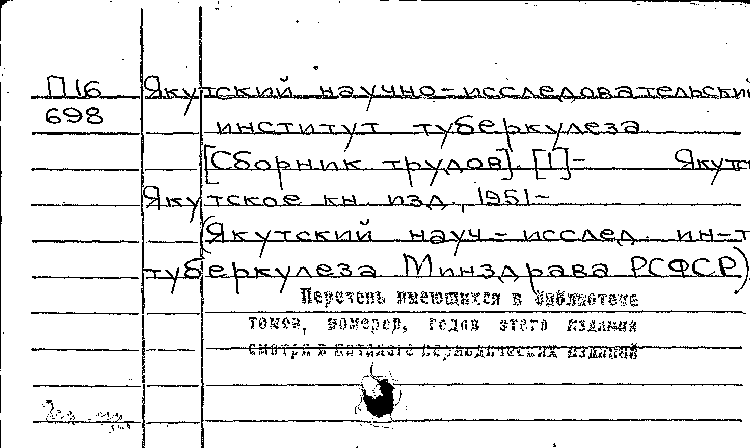 П16 Якутский научно-исследовательский
698
институт туберкулеза
[Сборник трудов]. [1]- Якутс
Якутское кн. изд., 1951-
(Якутский науч.-исслед. ин-т
туберкулеза Минздрава РСФСР)
Перечень имеющихся в библиотеке
томов, номеров, годов этого издания
смотри в каталоге периодических изданий